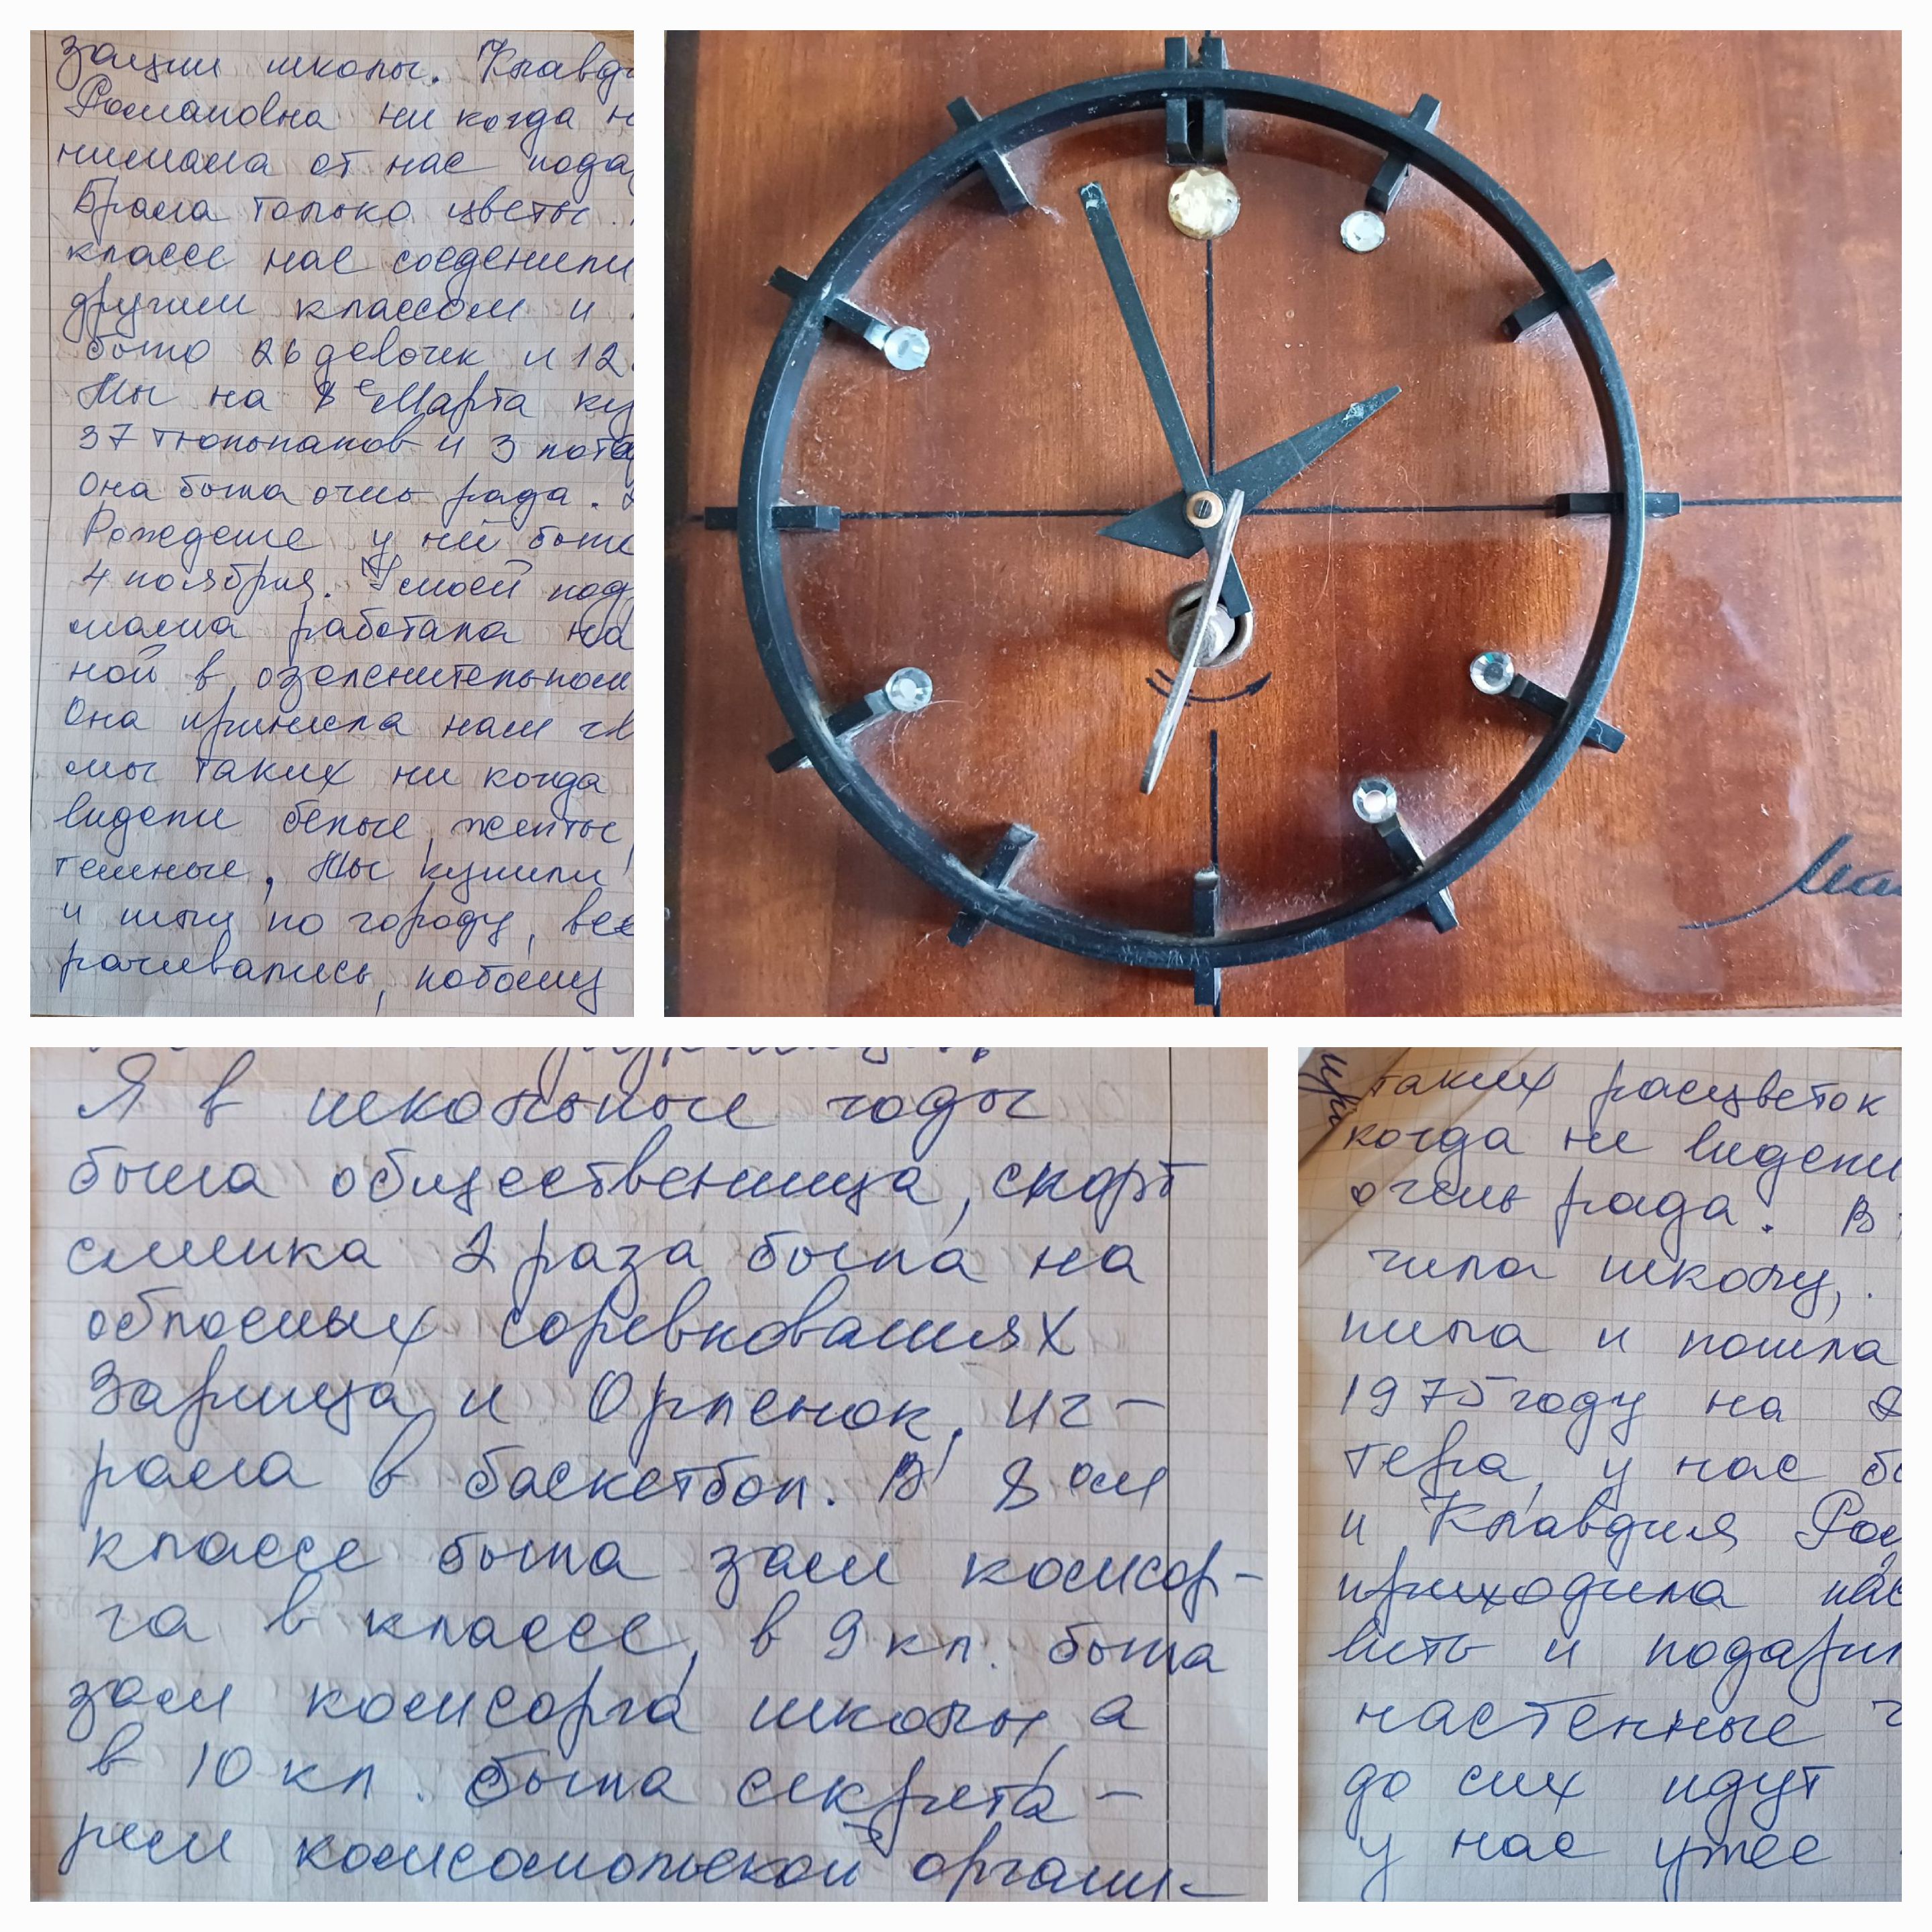 зации школы. Клавд
Романовна ни когда н
нимала от нас пода
Брала только цветы.
классе нас соеденили
другим классом и
было 26 девочек и 12
Мы на 8 Марта ку
37 тюльпанов и 3
Она была очнь рада.
Рождение у ней было
4 ноября. У моей под
мама работала на
ной в озеленительном
Она принесла нам
мы таких ни когда
видели белые, желтые,
темные. Мы купили
и шли по городу, все
рачивались, патаму
Я в школьные годы
была общественница, спорт
сменка 2 раза была на
обласных соревнованиях
Зарница и Орленок, иг-
рала в баскетбол. В 8 ом
классе была зам комсор-
га в классе, в 9 кл. была
зам комсорга школы, а
в 10 кл. была секрета-
рем комсомольской органи-
таких расцветок
когда не видели
очень рада. В
чила школу,
пила и пошла
1975 году на 8
тера, у нас бы
и Клавдия Ром
приходила
вить и подари
настенные ч
до сих идут
у нас уже